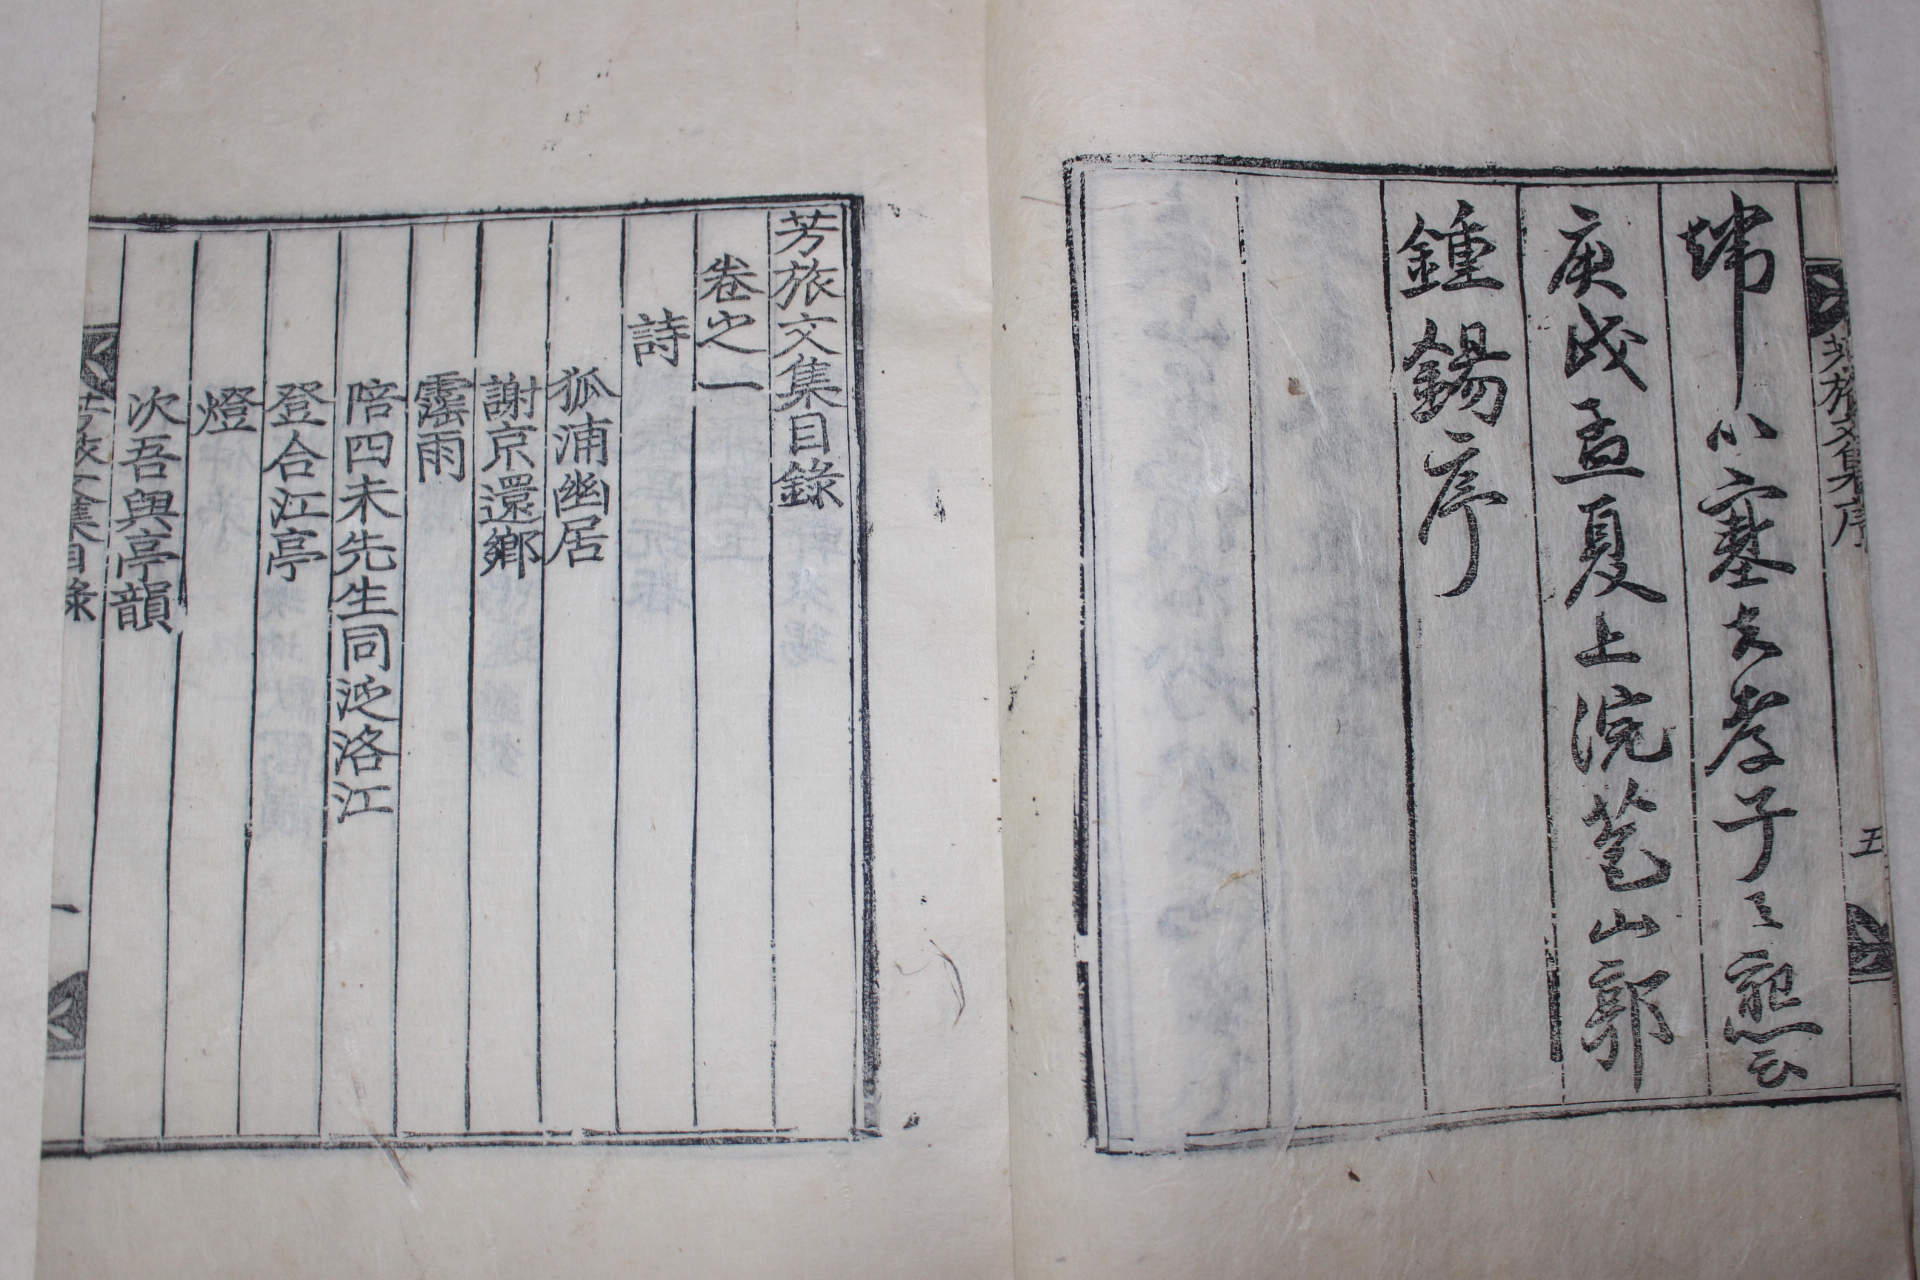 芳旅文集序
五
煒以塞夫孝子之懇云
庚戌孟夏上浣苞山郭
鍾錫序
芳旅文集目錄
卷之一
詩
狐浦幽居
謝京還鄉
霪雨
陪四未先生同泛洛江
登合江亭
燈
次吾與亭韻
芳旅文集目錄
一